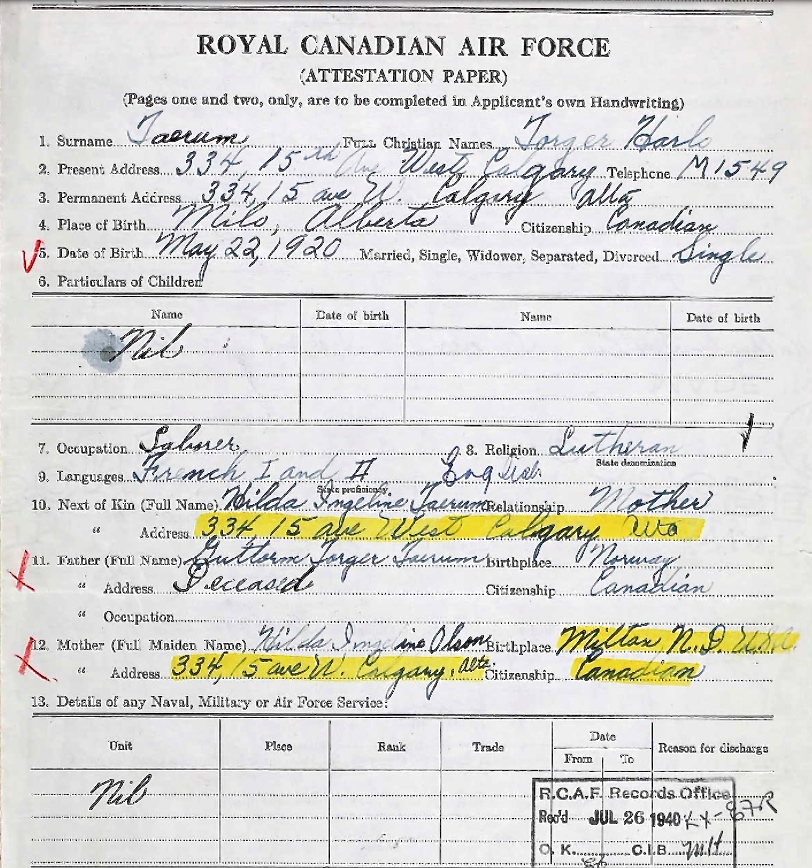 ROYAL CANADIAN AIR FORCE
(ATTESTATION PAPER)
(Pages one and two, only, are to be completed in Applicant's own Handwriting)
1. Surname Taerum Full Christian Names Torger Harlo
2. Present Address 334, 15th Ave West Calgary Telephone M1549
3. Permanent Address 334, 15 ave W. Calgary Alta
4. Place of Birth Milo, Alberta Citizenship Canadian
5. Date of Birth May 22, 1920 Married, Single, Widower, Separated, Divorced Single
6. Particulars of Children
Name Date of birth Name Date of birth
Nil
7. Occupation Laborer 8. Religion Lutheran
State denomination
9. Languages French I and II English
State proficiency
10. Next of Kin (Full Name) Hilda Ingeline Taerum Relationship Mother
" Address 334 15 ave West Calgary Alta
11. Father (Full Name) Guttorm Torger Taerum Birthplace Norway
" Address Deceased Citizenship Canadian
" Occupation
12. Mother (Full Maiden Name) Hilda Ingeline Olson Birthplace Milton N.D. U.S.A.
" Address 334, 15 ave W. Calgary, Alta. Citizenship Canadian
13. Details of any Naval, Military or Air Force Service:
Unit Place Rank Trade Date Reason for discharge
From To
Nil
R.C.A.F. Records Office
Rec'd JUL 26 1940
O. K. C.I.B.